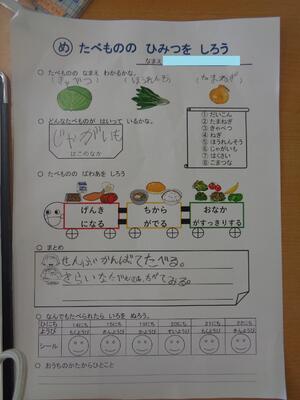 め たべものの ひみつを しろう
なまえ
○ たべものの なまえ わかるかな。
(きゃべつ) (ほうれんそう) (たまねぎ)
○ どんなたべものが はいって いるかな。
じゃがいも
はこのなか
① だいこん
② たまねぎ
③ きゃべつ
④ ねぎ
⑤ ほうれんそう
⑥ じゃがいも
⑦ はくさい
⑧ こまつな
○ たべものの ぱわあを しろう
げんき
になる
ちから
がでる
おなか
がすっきりする
○ まとめ
ぜんぶがんばてたべる。
きらいな
みる。
○ なんでもたべられたら いろを ぬろう。
ひにち
ようび もくようび きんようび かようび すいようび もくようび きんようび
シール
○ おうちのかたからひとこと